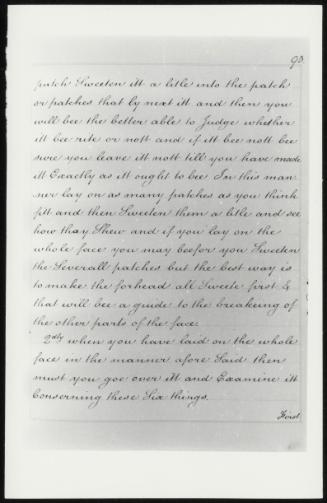 93.
patch Sweeten itt a litle into the patch
or patches that ly next itt and then you
will bee the better able to Judge whether
itt bee rite or nott and if itt bee nott bee
sure you leave itt nott till you have made
itt Exactly as itt ought to bee In this man
ner lay on as many patches as you think
fitt and then Sweeten them a litle and see
how thay Shew and if you lay on the
whole face you may beefor you Sweeten
the Severall patches but the best way is
to make the forhead all Sweete first &
that will bee a guide to the breakeing of
the other parts of the face.
2dly when you have laid on the whole
face in the manner afore Said then
must you goe over itt and Examine itt
Conserning these Six things.
First